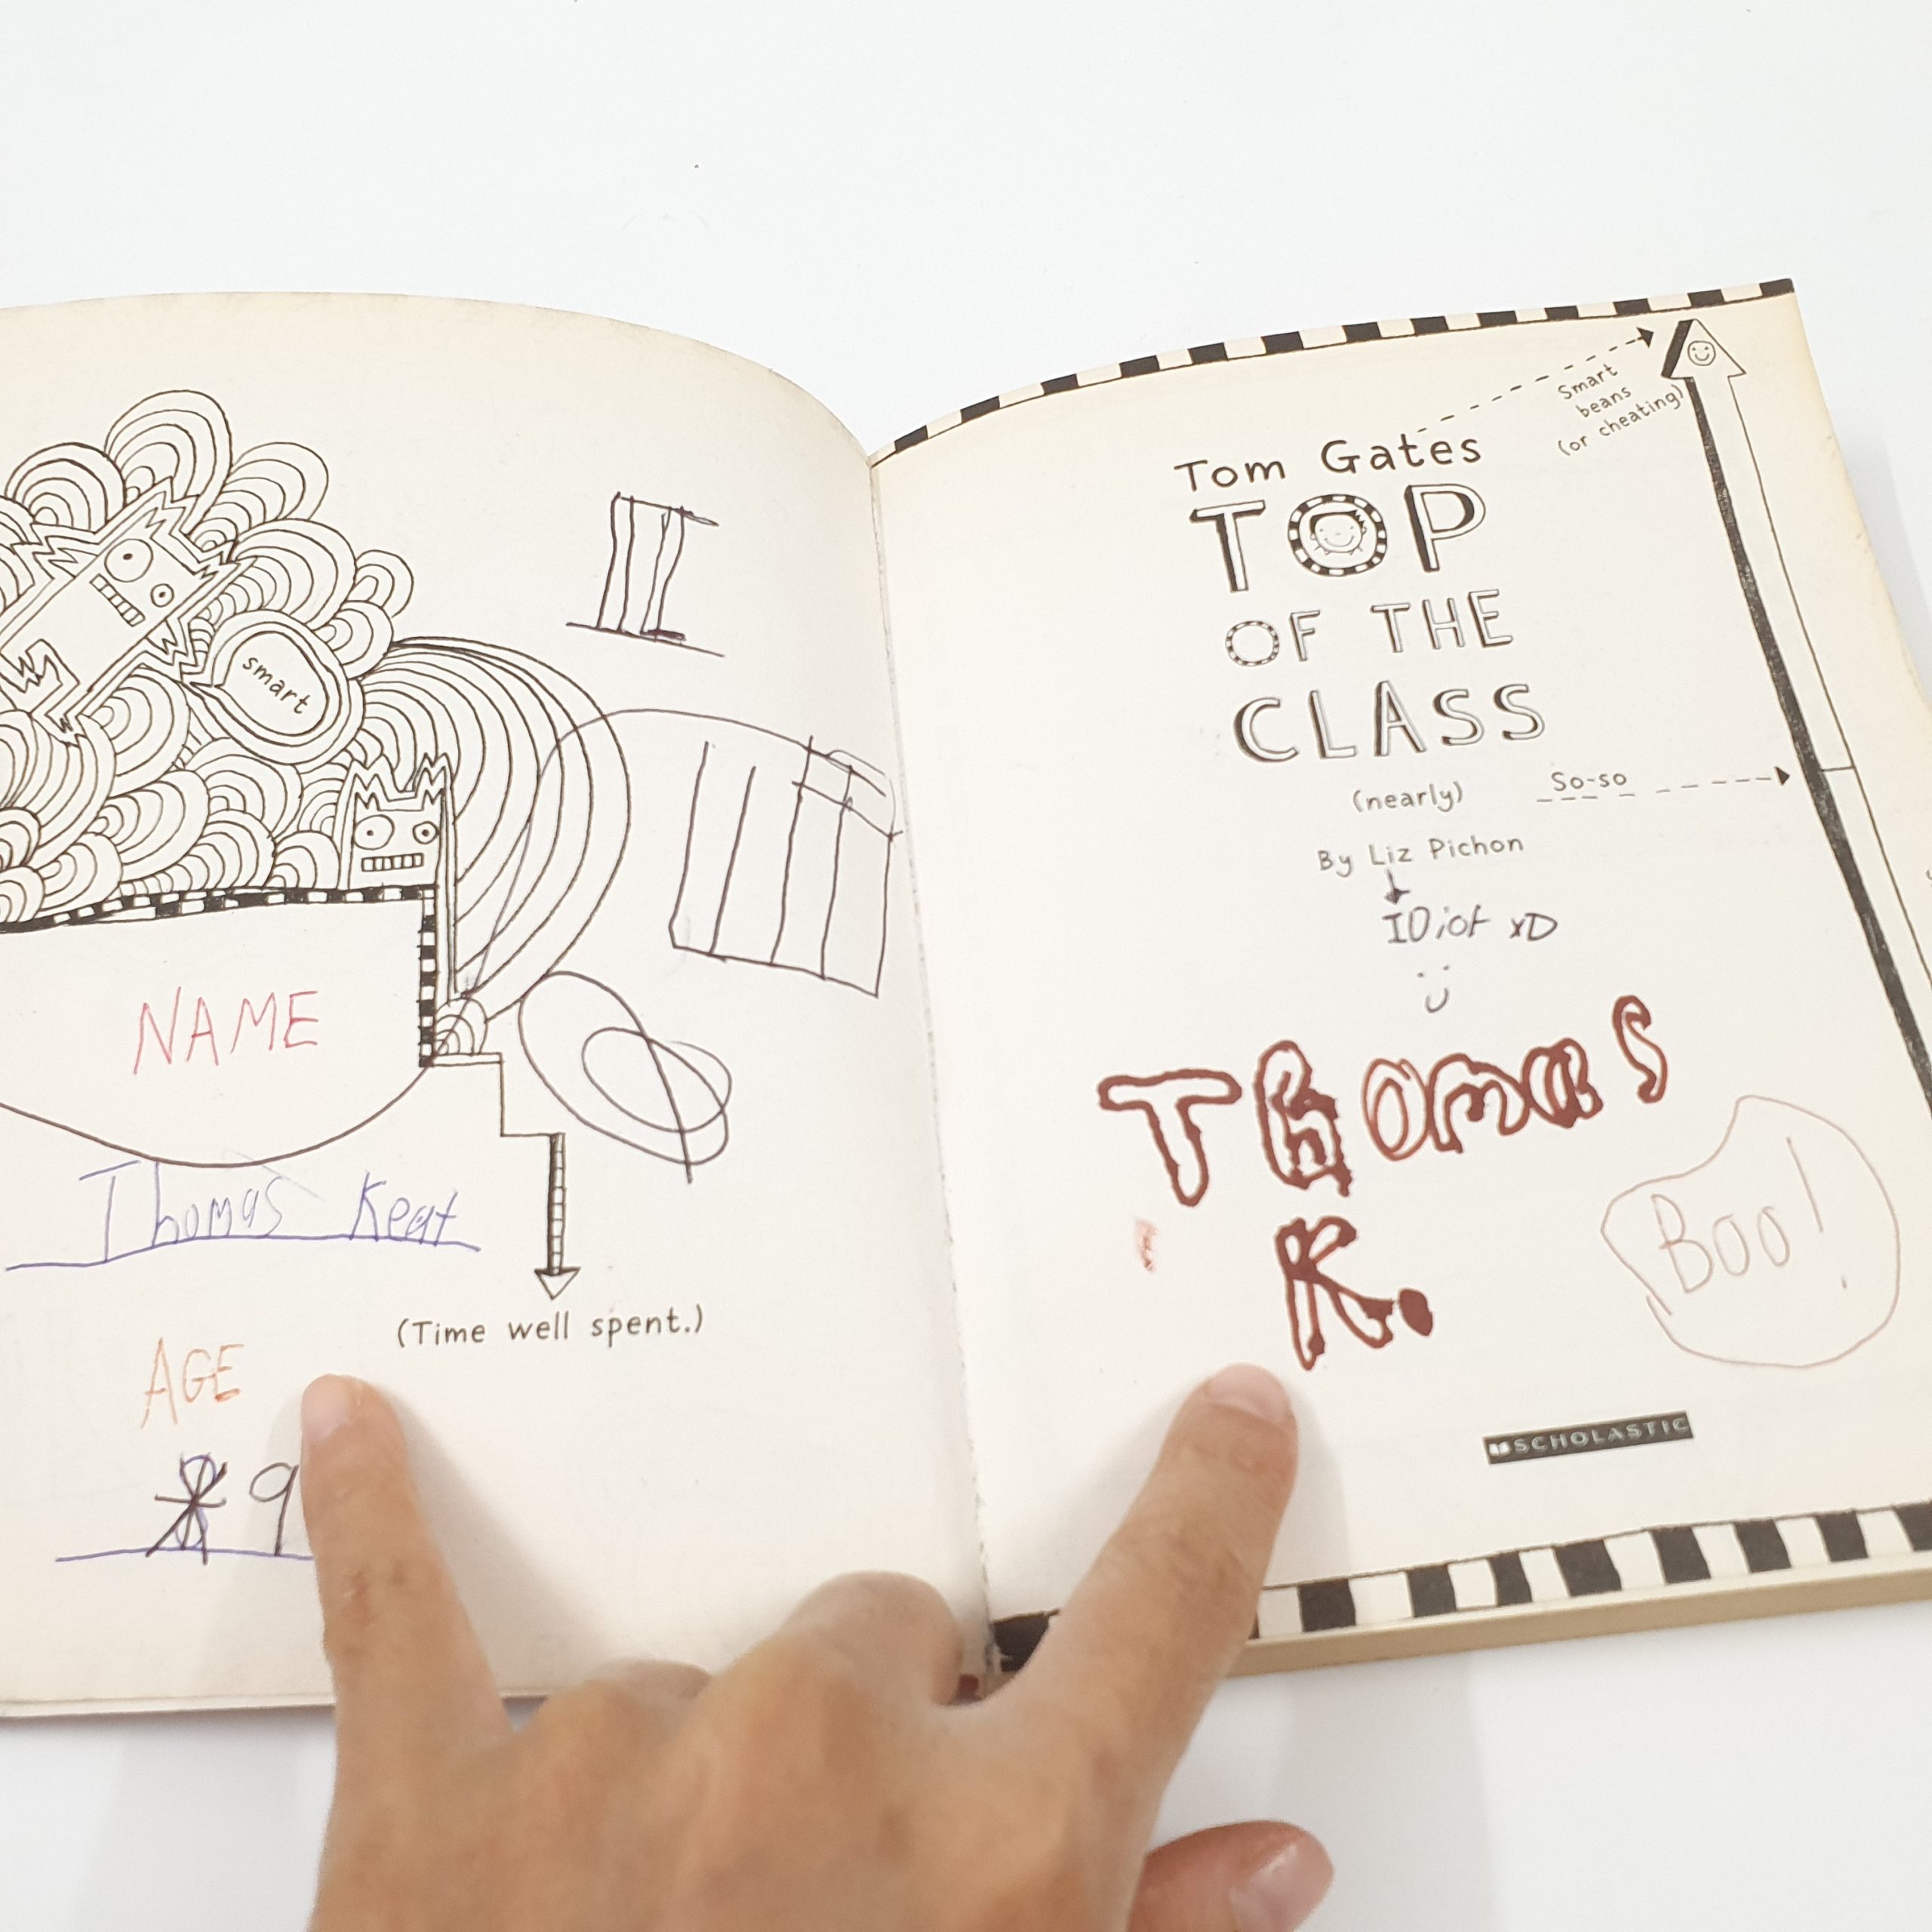 smart
NAME
Thomas Keat
(Time well spent.)
AGE
9
Smart
beans
(or cheating)
Tom Gates
TOP
OF THE
CLASS
(nearly)
So-so
By Liz Pichon
IDiot xD
Thomas
K.
Boo!
SCHOLASTIC